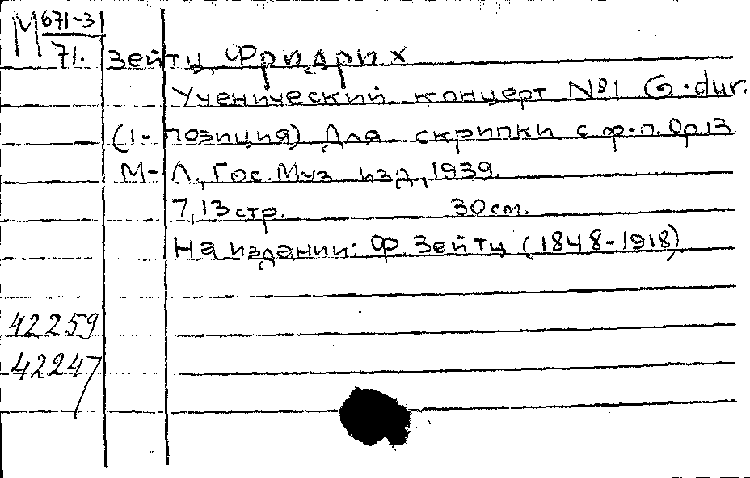 М 671-3
71. Зейтц Фридрих
Ученический концерт №1 G-dur.
(1-позиция) Для скрипки с ф-п. Op13
М-Л, Гос. Муз изд, 1939.
7,13 стр. 30 см.
На издании: Ф. Зейтц (1848-1918)
42259
42247